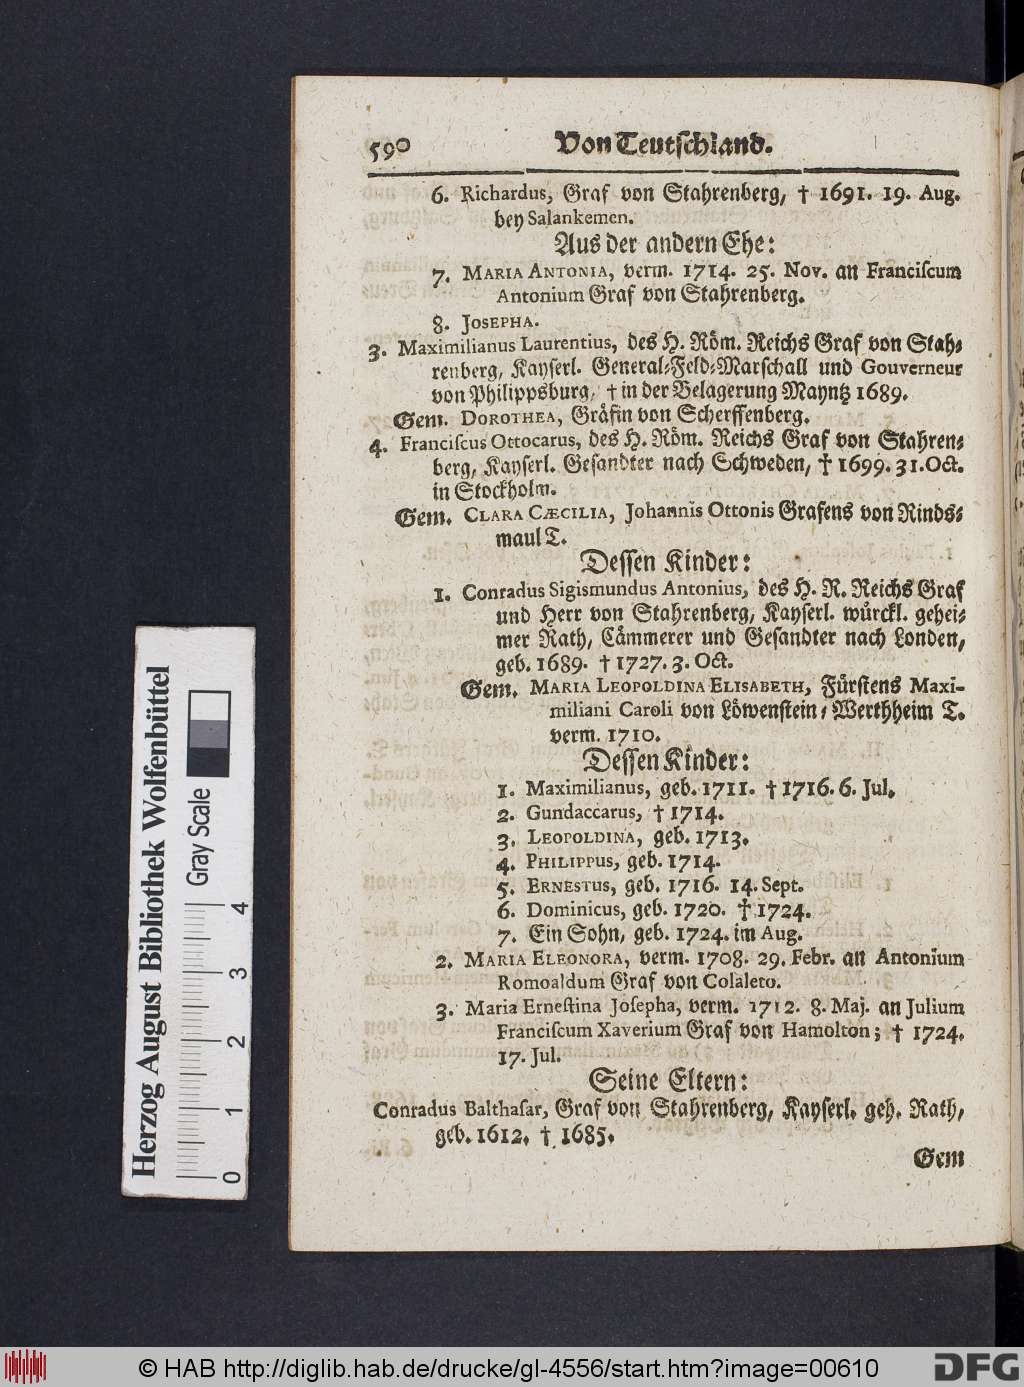 590 Von Teutschland.
6. Richardus, Graf von Stahrenberg, † 1691. 19. Aug.
bey Salankemen.
Aus der andern Ehe:
7. MARIA ANTONIA, verm. 1714. 25. Nov. an Franciſcum
Antonium Graf von Stahrenberg.
8. JOSEPHA.
3. Maximilianus Laurentius, des H. Röm. Reichs Graf von Stah-
renberg, Kayserl. General-Feld-Marschall und Gouverneur
von Philippsburg, † in der Belagerung Mayntz 1689.
Gem. DOROTHEA, Gräfin von Scherffenberg.
4. Franciſcus Ottocarus, des H. Röm. Reichs Graf von Stahren-
berg, Kayserl. Gesandter nach Schweden, † 1699. 31. Oct.
in Stockholm.
Gem. CLARA CÆCILIA, Johannis Ottonis Grafens von Rinds-
maul T.
Dessen Kinder:
1. Conradus Sigismundus Antonius, des H. R. Reichs Graf
und Herr von Stahrenberg, Kayserl. würckl. gehei-
mer Rath, Cämmerer und Gesandter nach Londen,
geb. 1689. † 1727. 3. Oct.
Gem. MARIA LEOPOLDINA ELISABETH, Fürstens Maxi-
miliani Caroli von Löwenstein-Werthheim T.
verm. 1710.
Dessen Kinder:
1. Maximilianus, geb. 1711. † 1716. 6. Jul.
2. Gundaccarus, † 1714.
3. LEOPOLDINA, geb. 1713.
4. PHILIPPUS, geb. 1714.
5. ERNESTUS, geb. 1716. 14. Sept.
6. Dominicus, geb. 1720. † 1724.
7. Ein Sohn, geb. 1724. im Aug.
2. MARIA ELEONORA, verm. 1708. 29. Febr. an Antonium
Romoaldum Graf von Colaleto.
3. Maria Erneſtina Joſepha, verm. 1712. 8. Maj. an Julium
Franciſcum Xaverium Graf von Hamolton; † 1724.
17. Jul.
Seine Eltern:
Conradus Balthaſar, Graf von Stahrenberg, Kayserl. geh. Rath,
geb. 1612. † 1685.
Gem
Herzog August Bibliothek Wolfenbüttel
Gray Scale
0 1 2 3 4
© HAB http://diglib.hab.de/drucke/gl-4556/start.htm?image=00610
DFG